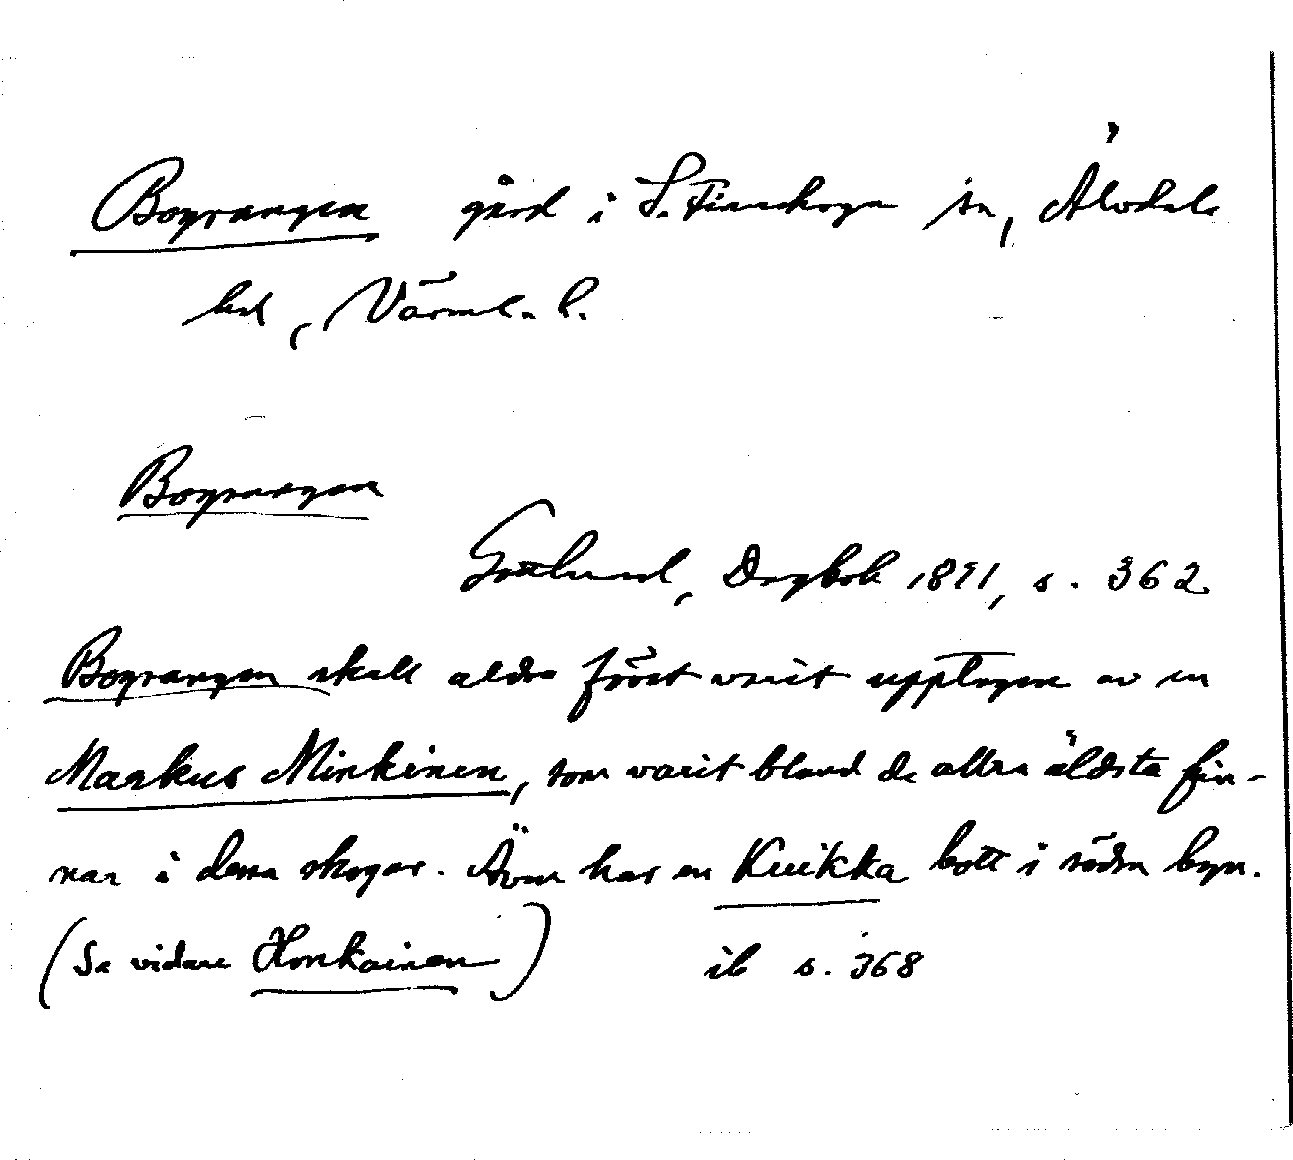 Bograngen gård i S. Finnskoga sn, Älvdals
hd, Värml. l.
Bograngen
Gottlund, Dagbok 1821, s. 362
Bograngen skall aldra först varit upptagen av en
Markus Minkinen, som varit bland de allra äldsta fin-
nar i dessa skogar. Även har en Kuikka bott i södra byn.
(Se vidare Honkainen)
ib s. 368